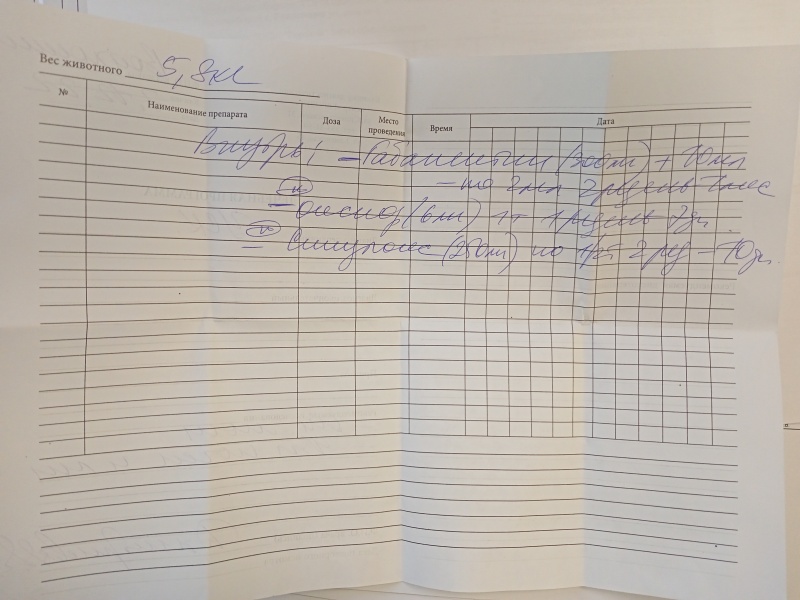 Вес животного 5,8кг
№ Наименование препарата Доза Место проведения Время Дата
Внутрь: – Габапентин (300мг) + 10мл
– по 2мл 2р/день
– (6мг) 1т 1р/день 7дн.
– (250мг) по 2рд – 10дн.